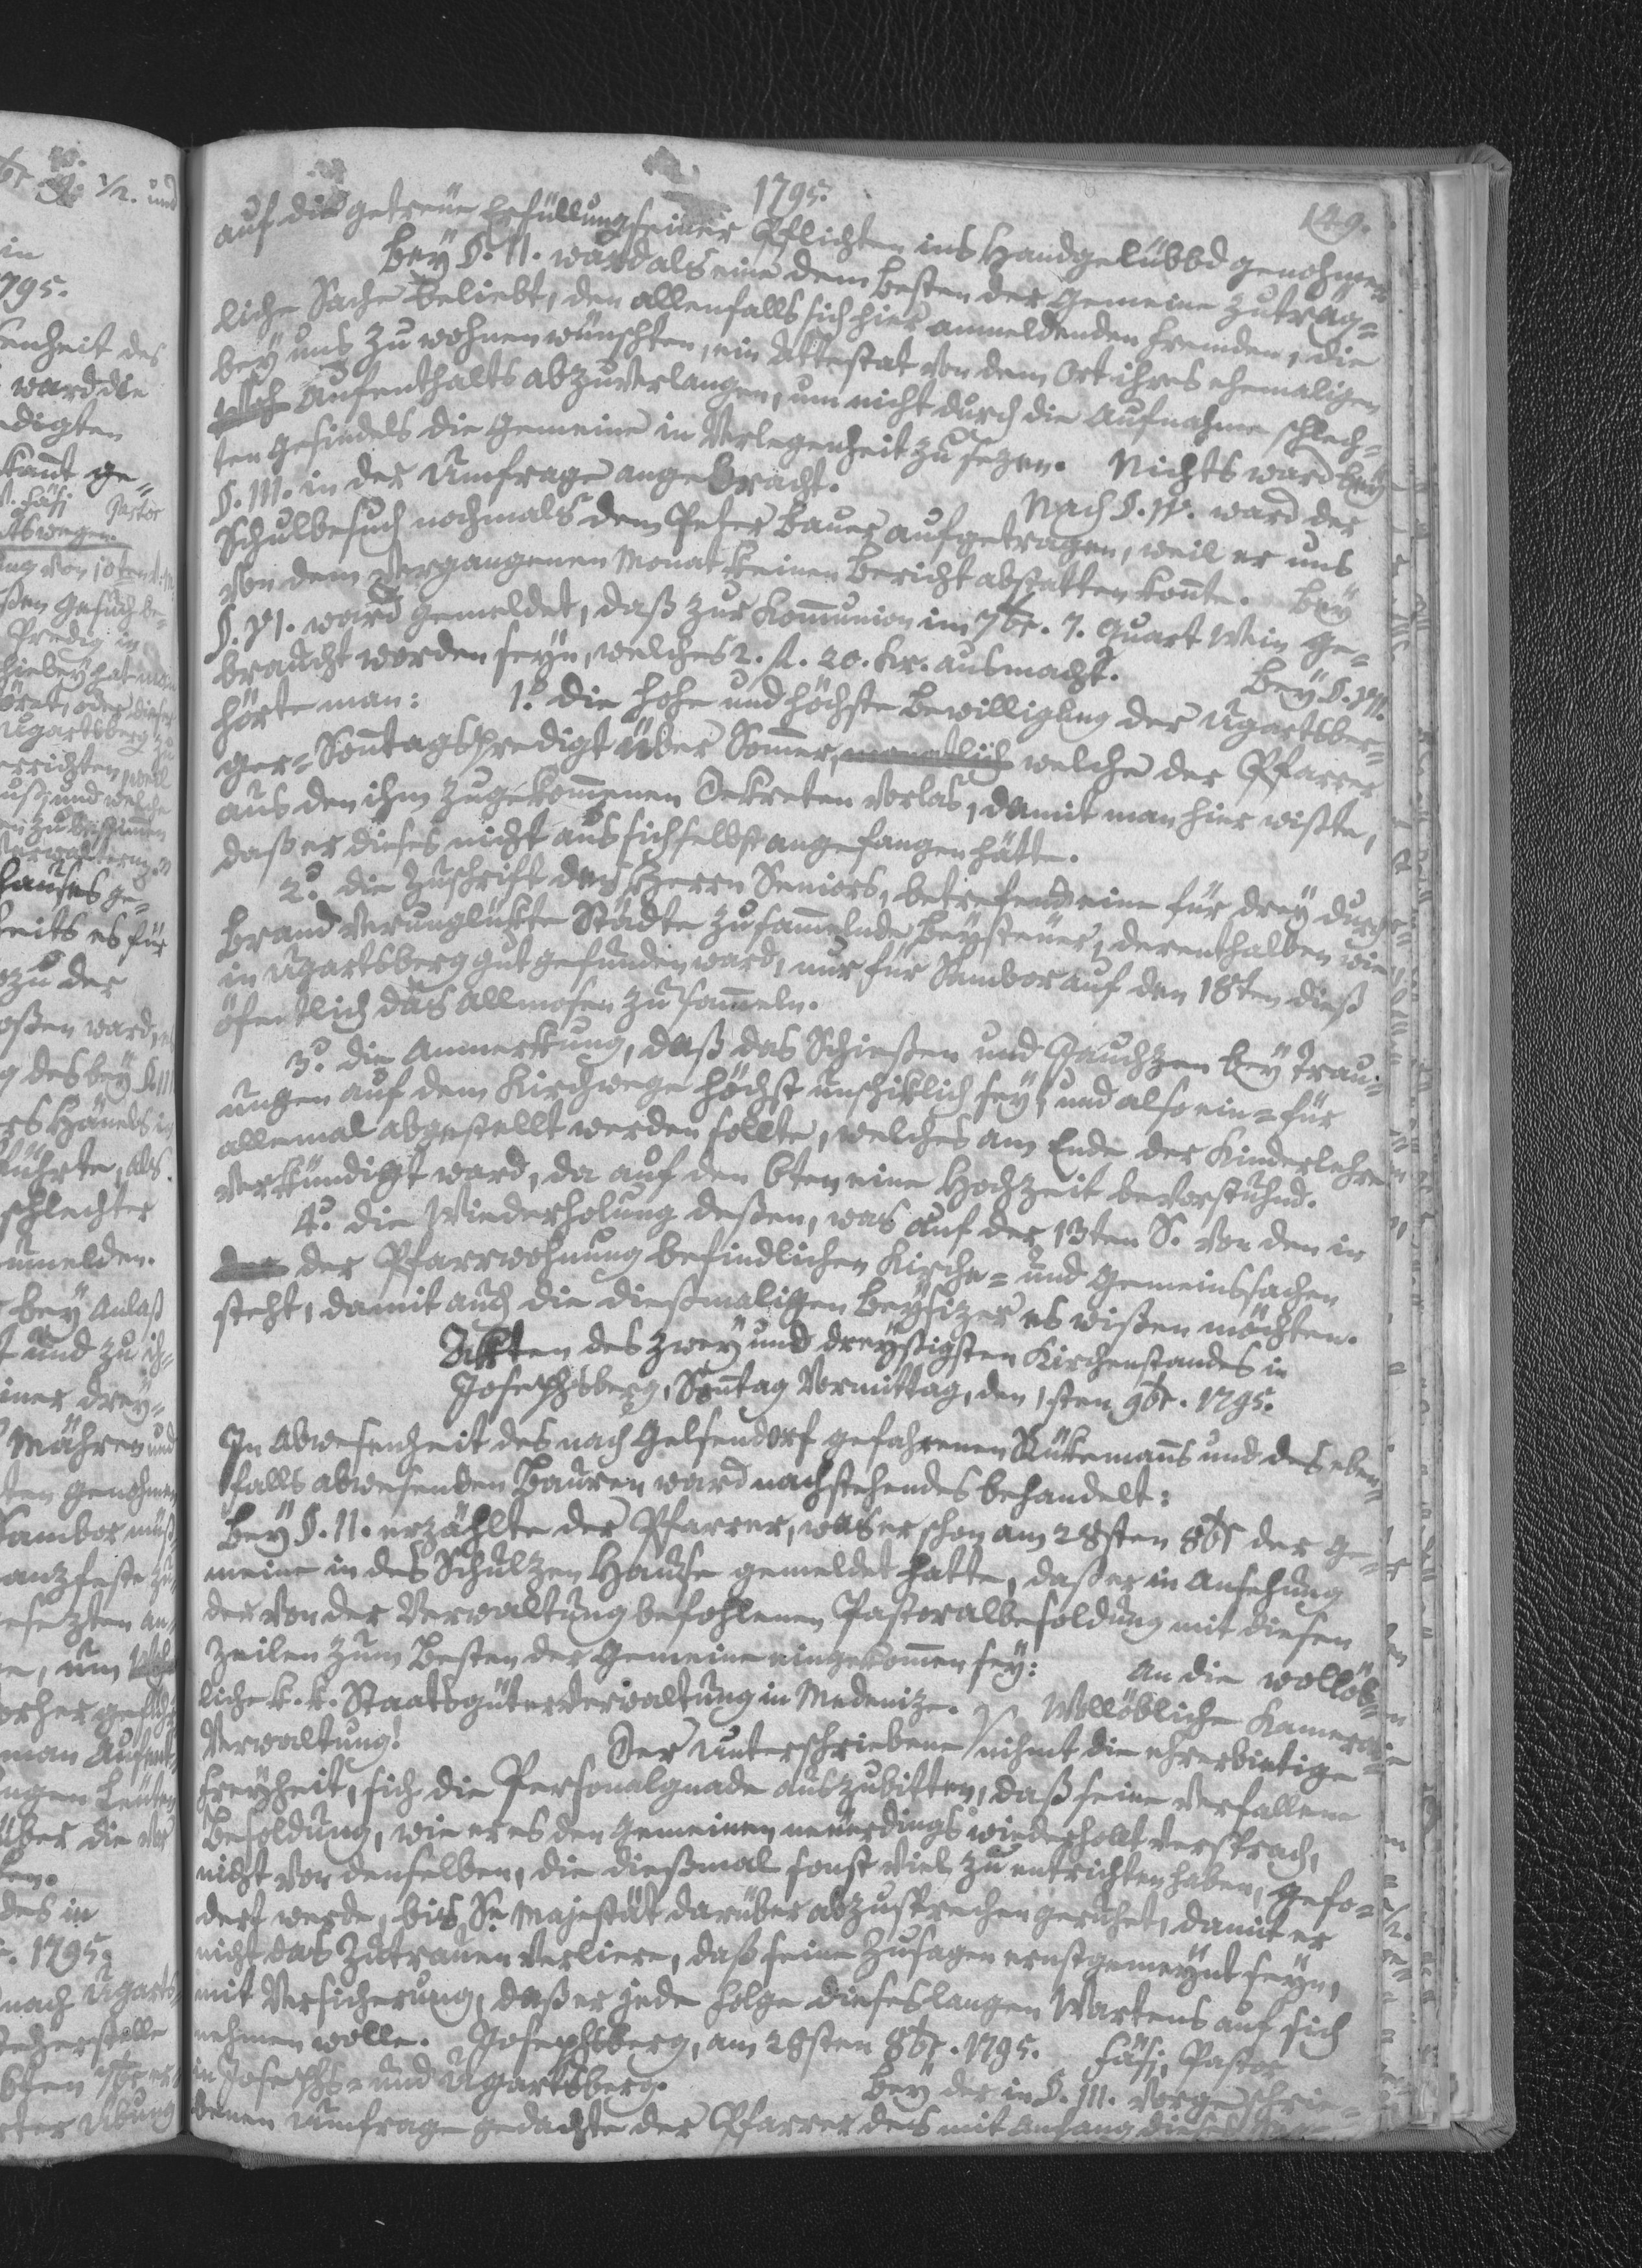 1795.
149.
auf die getreüe Erfüllung seiner Pflichten ins Handgelübbd genohmen.
Bey §. II. ward als eine dem Besten der Gemeine zuträg=
liche Sache beliebt, den allenfalls sich hier anmeldenden Fremden, die
bey uns zu wohnen wünschten, ein Attestat von dem Ort ihres ehemaligen
Aufenthalts abzuverlangen, um nicht durch die Aufnahme schlech=
ten Gesindels die Gemeine in Verlegenheit zu sezen. Nichts ward bey
§. III. in der Umfrage angebracht. Nach §. IV. ward der
Schulbesuch nochmals dem Peter Bauer aufgetragen, weil er uns
von dem vergangenen Monat keinen Bericht abstatten konnte. Bey
§. VI. ward gemeldet, daß zur Kom̄union im 7br. 7. Quart Wein ge=
braucht worden seyn, welches 2. fl. 20. Kr. ausmacht. Bey §. VII.
hörte man: 1.° Die hohe und höchste Bewilligung der Ugartsber=
ger=Son̄tagspredigt über Som̄er, monatlich welche der Pfarrer
aus den ihm zugekom̄enen Dekreten vorlas, damit man hier wißte,
daß er dieses nicht aus sich selbst angefangen hätte.
2.° Die Zuschrift des Herrn Seniors, betrefend eine für drey durch
Brand verunglükte Städte zu sam̄elnde Beysteüer, derenthalben wie
in Ugartsberg gut gefunden ward, nur für Sambor auf den 18ten dieß
öfentlich das Allmosen zu sam̄eln.
3.° Die Anmerkung, daß das Schießen und Jauchzen bey Trau=
ungen auf dem Kirchwege höchst unschiklich sey, und also ein= für
allemal abgestellt werden sollte, welches am Ende der Kinderlehre
verkündigt ward, da auf den 6ten eine Hochzeit bevorstuhnd.
4.° Die Wiederholung deßen, was auf der 13ten S. von den in
der der Pfarrwohnung befindlichen Kirche= und Gemeinssachen
steht, damit auch die dießmaligen Beysizer es wißen möchten.
Akten des zwey und dreyßigsten Kirchenstandes in
Josephsberg, Son̄tag Vormittag, den 1sten 9br. 1795.
In Abwesenheit des nach Gelsendorf gefahrenen Rükeman̄s und des eben=
falls abwesenden Bauren ward nachstehendes behandelt:
Bey §. II. erzählte der Pfarrer, was er schon am 28sten 8br der Ge=
meine in des Schulzen Hause gemeldet hatte, daß er in Ansehung
der von der Verwaltung befohlenen Pastoralbesoldung mit diesen
Zeilen zum Besten der Gemeine eingekom̄en sey: An die wollöb=
liche k. k. Staatsgüterverwaltung in Medenize. Wollöbliche Kameral=
Verwaltung! Der Unterschriebene nihmt die ehrerbietige
Freyheit, sich die Personalgnade auszubitten, daß seine verfallene
Besoldung, wie er es den Gemeinen neüerdings wiederhollt versprach,
nicht von denselben, die dießmal sonst viel zu entrichten haben, gefo=
dert werde, bis Se Majestät darüber abzusprechen geruhet, damit er
nicht das Zutrauen verliere, daß seine Zusagen ernstgemeynt seyn,
mit Versicherung, daß er jede Folge dieses langen Wartens auf sich
nehmen wolle. Josephsberg, am 28sten 8br. 1795. Fäsi, Pastor
in Josephs= und Ugartsberg. Bey der in §. III. vorgeschrie=
benen Umfrage gedachte der Pfarrer des mit Anfang dieses